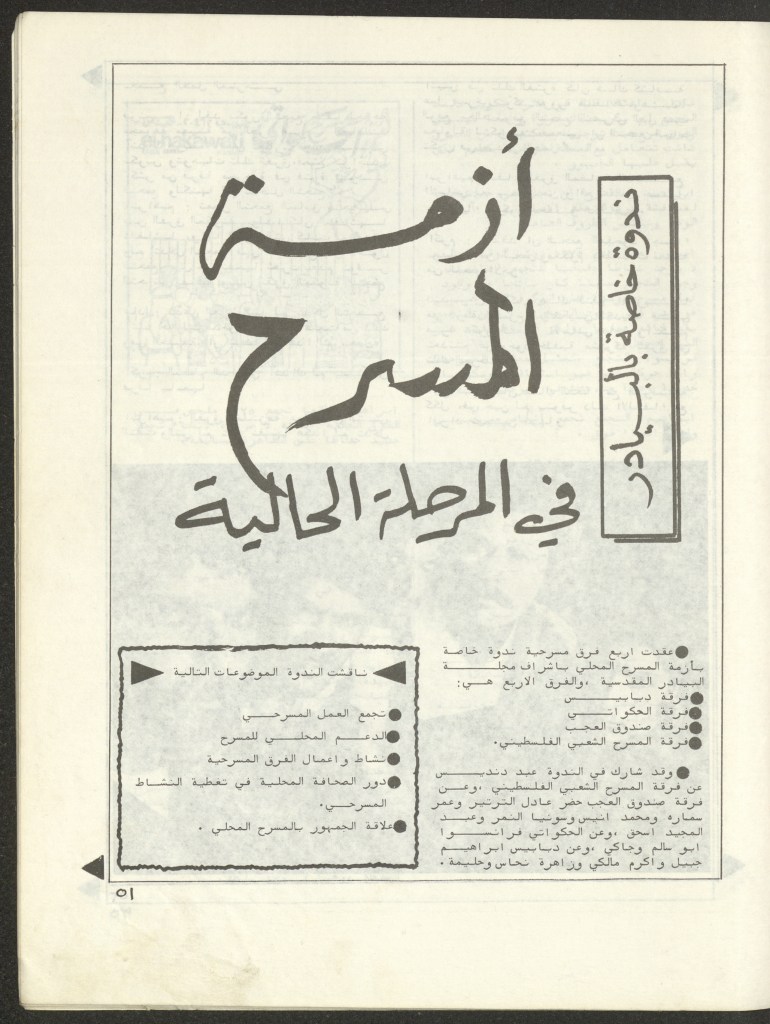 ندوة خاصة بالبيادر
أزمة
المسرح
في المرحلة الحالية
●عقدت اربع فرق مسرحية ندوة خاصة
بأزمة المسرح المحلي باشراف مجلة
البيادر المقدسية ،والفرق الاربع هي:
●فرقة دبابيس
●فرقة الحكواتي
●فرقة صندوق العجب
●فرقة المسرح الشعبي الفلسطيني.
●وقد شارك في الندوة عبد دنديس
عن فرقة المسرح الشعبي الفلسطيني ،وعن
فرقة صندوق العجب حضر عادل الترتير وعمر
سماره ومحمد انيس وسونيا النمر وعبد
المجيد اسحق ،وعن الحكواتي فرانسوا
ابو سالم وجاكي ،وعن دبابيس ابراهيم
جبيل واكرم مالكي وزاهرة نحاس وحليمة .
ناقشت الندوة الموضوعات التالية
●تجمع العمل المسرحي
●الدعم المحلي للمسرح
●نشاط واعمال الفرق المسرحية
●دور الصحافة المحلية في تغطية النشاط
المسرحي.
●علاقة الجمهور بالمسرح المحلي .
٥١